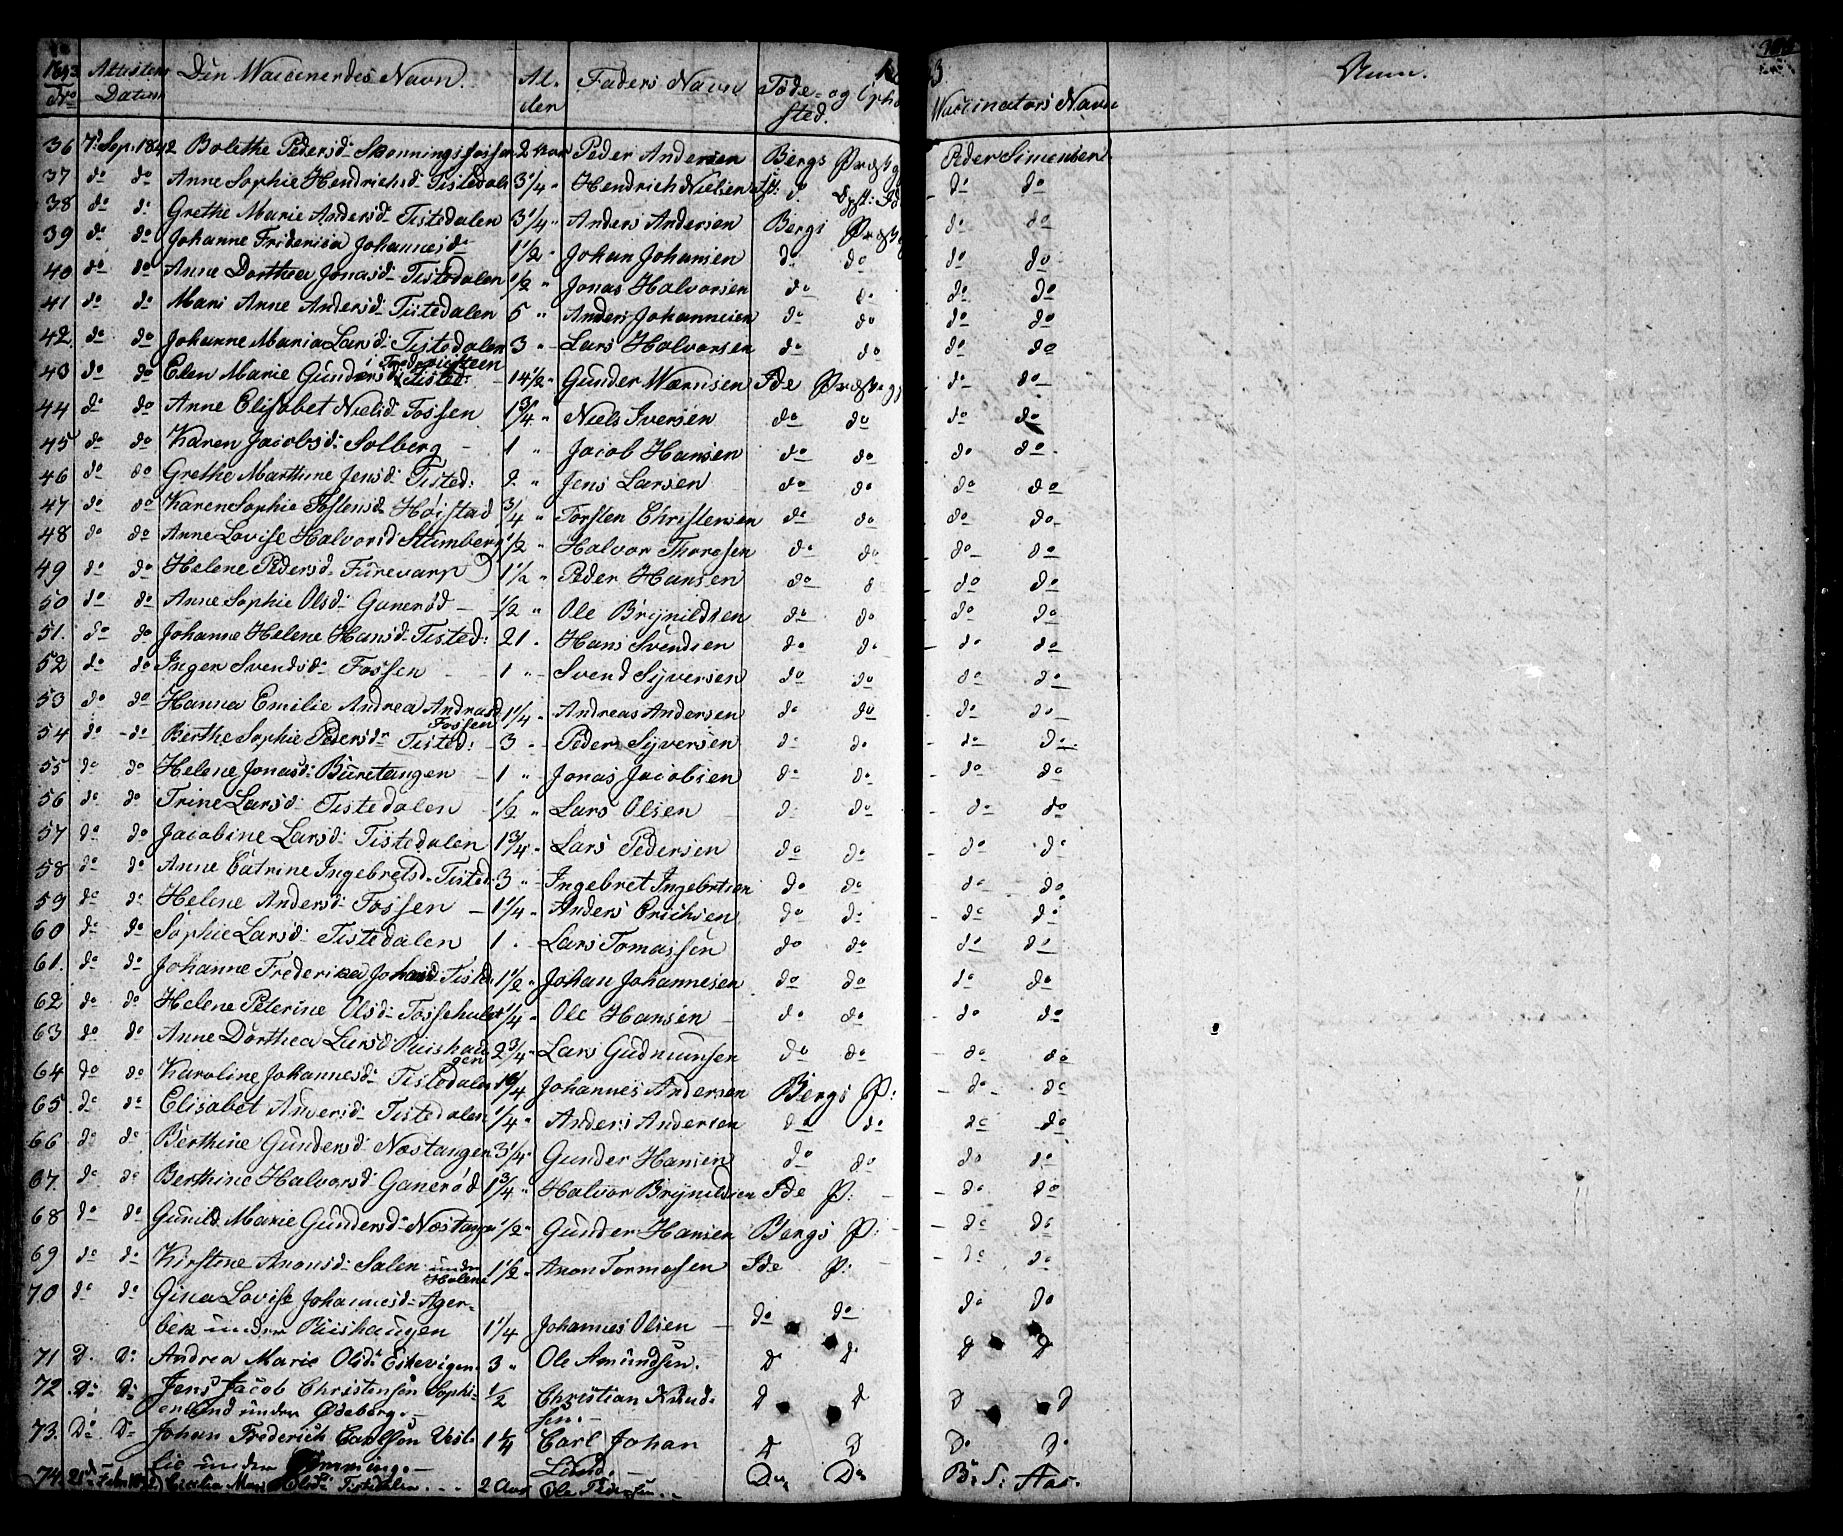 1843 Attestens Den Waccineredes Navn. Al- Faders Navn Føde- og Opho
No Datum der sted. Waccinators Navn Anm.
36 7de Sep: 1842 Bolethe Pedersd: 2 Aar Peder Andersen Bergs Præstg Peder Simensen
37 do do Anne Sophie Hendrichsd: Tistedale 3 1/4 " Hendrich Nielsen do do
38 do do Grethe Marie Andersd: Tistedalen 3 1/4 " Anders Andersen Bergs Præstg do do
39 do do Johanne Fridericia Johannesd: 1 1/2 " Johan Johansen do do do do
40 do do Anne Dorthea Jonasd: Tistedalen 1/2 " Jonas Halvorsen do do do do
41 do do Mari Anne Andersd: Tistedalen 5 " Anders Johannesen do do do do
42. do do Johanne Maria Larsd: Tistedalen 3 " Lars Halvorsen do do do do
i Fredrichsteen
43 do do Elen Marie Gundersd: Tisted: 14 1/2 " Gunder Wærnsen Ide Præstegj do do
44 do do Anne Elisabet Nielsd: Fossen 1 3/4 " Niels Iversen do do do do
45 do do Karen Jacobsd: Solberg - 1 " Jacob Hansen do do do do
46 do do Grethe Marthine Jensd: Tisted: 2 " Jens Larsen do do do do
47 do do Karen Sophie Tostensd: Høistad 3/4 " Torsten Christensen do do do do
48 do do Anne Lovise Halvorsd Stumberg 1/2 " Halvor Thoresen do do do do
49 do do Helene Pedersd: Furevarp 1 1/2 " Peder Hansen do do do do
50 do do Anne Sophie Olsd: Ganerød - 1/2 " Ole Brynildsen do do do do
51. do do Johanne Helene Hansd: Tisted: 21 . Hans Svendsen do do do do
52 do do Inger Svendsd: Fossen - 1 " Svend Syversen do do do do
53 do do Hanna Emilie Andrea Andreasd 1 1/4 " Andreas Andersen do do do do
Fossen
54 do do Berthe Sophie Pedersd: Tisted: 3 - Peder Syversen do do do do
55 do do Helene Jonasd: Buretangen - 1 " Jonas Jacobsen do do do do
56 do do Trine Larsd: Tistedalen 1/2 " Lars Olsen do do do do
57 do do Jacobine Larsd: Tistedalen 1 3/4 " Lars Pedersen do do do do
58 do do Anne Catrine Ingebretsd: Tisted: 3 " Ingebret Ingebrtsen do do do do
59 do do Helene Andersd: Fossen - 1 1/4 " Anders Erichsen do do do do
60 do do Sophie Larsd: Tistedalen 1 . Lars Tomassen do do do do
61. do do Johanne Frederikea Johansd: Tisted: 1 1/2 " Johan Johannesen do do do do
62 do do Helene Peterine Olsd: Fossehulet 1/4 " Ole Hansen - do do do do
63 do do Anne Dorthea Larsd: Riishau 2 3/4 " Lars Gudmunsen do do do do
gen
64 do do Karoline Johannesd: Tistedalen Johannes Andersen Bergs P: do do
65 do do Elisabet Andersd: Tistedalen 1/4 " Anders Andersen do do do do
66 do do Berthine Gundersd: Næstangen 3 1/4 " Gunder Hansen do do do do
67. do do Berthine Halvorsd: Ganerød 1 3/4 " Halvor Brynildsen Ide P: do do
68 do do Gunild Marie Gundersd: Næstange 1/2 " Gunder Hansen Bergs P: do do
69 do do Kirstene Anonsd: Salen under 1 1/2 " Anon Tormosen Ide P: do do
Holene
70 do do Gina Lovise Johannesd: Ager-
bek under Riishaugen 1 1/4 Johannes Olsen - do do do do
71 D. Do: Andrea Marie Olsd: Eskevigen. 3 " Ole Amundsen. D D D D
72 Do: Do: Jens Jacob Christensen Sophi- 1/2 Christian Knud- D D D D
enlund under Ødeborg. - sen. -
73. Do: Do: Johan Frederich Carlson Vest- 1 1/4 Carl Johan D D Do Do
lie under - Lund. -
74. 21de Febr Cecilia Mari Olsd: Tistedalen . . . 2 Aar Ole Pedersen. - Do Do B: S: Aas.